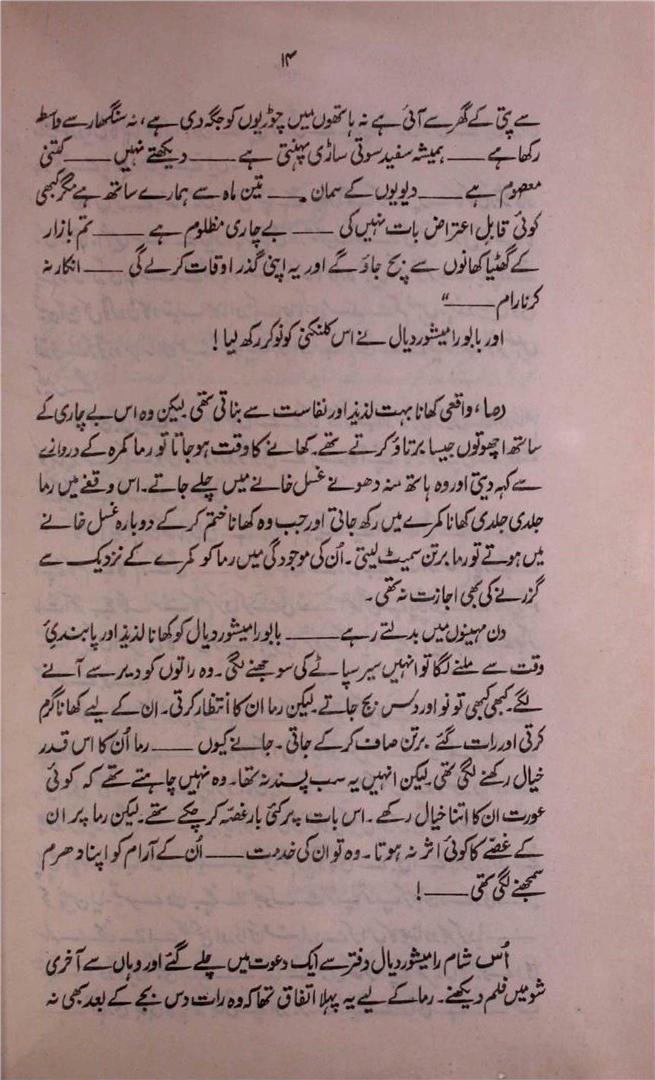 ۱۳
سے پتی کے گھر سے آئی ہے نہ ہاتھوں میں چوڑیوں کو جگہ دی ہے، نہ سنگھار سے واسطہ
رکھا ہے ــــ ہمیشہ سفید سوتی ساڑی پہنتی ہے ــــ دیکھتے نہیں ــــ کتنی
معصوم ہے ــــ دیویوں کے سمان ۔ــــ تین ماہ سے ہمارے ساتھ ہے مگر کبھی
کوئی قابلِ اعتراض بات نہیں کی ــــ بے چاری مظلوم ہے ــــ تم بازار
کے گھٹیا کھانوں سے بچ جاؤ گے اور یہ اپنی گذر اوقات کرلے گی ــــ انکار نہ
کرنا رام ــــ“
اور بابو رامیشور دیال نے اس کلنکنی کو نوکر رکھ لیا!
رما، واقعی کھانا بہت لذیذ اور نفاست سے بناتی تھی۔ لیکن وہ اس بے چاری کے
ساتھ اچھوتوں جیسا برتاؤ کرتے تھے۔ کھانے کا وقت ہوجاتا تو رما کمرہ کے دروازے
سے کہہ دیتی اور وہ ہاتھ منہ دھونے غسل خانے میں چلے جاتے۔ اس وقفے میں رما
جلدی جلدی کھانا کمرے میں رکھ جاتی اور جب وہ کھانا ختم کرکے دوبارہ غسل خانے
میں ہوتے تو رما برتن سمیٹ لیتی۔ اُن کی موجودگی میں رما کو کمرے کے نزدیک سے
گزرنے کی بھی اجازت نہ تھی۔
دن مہینوں میں بدلتے رہے ــــ بابو رامیشور دیال کو کھانا لذیذ اور پابندیٔ
وقت سے ملنے لگا تو انہیں سیر سپاٹے کی سوجھنے لگی۔ وہ راتوں کو دیر سے آنے
لگے۔ کبھی کبھی تو نو اور دس بج جاتے۔ لیکن رما ان کا اُنتظار کرتی۔ ان کے لیے کھانا گرم
کرتی اور رات گئے برتن صاف کرکے جاتی۔ جانے کیوں ــــ رما اُن کا اس قدر
خیال رکھنے لگی تھی۔ لیکن انہیں یہ سب پسند نہ تھا۔ وہ نہیں چاہتے تھے کہ کوئی
عورت ان کا اتنا خیال رکھے۔ اس بات پر کئی بار غصّہ کر چکے تھے۔ لیکن رما پر ان
کے غصّے کا کوئی اثر نہ ہوتا۔ وہ تو ان کی خدمت ــــ اُن کے آرام کو اپنا دھرم
سمجھنے لگی تھی ــــ!
اُس شام رامیشور دیال دفتر سے ایک دعوت میں چلے گئے اور وہاں سے آخری
شو میں فلم دیکھنے۔ رما کے لیے یہ پہلا اتفاق تھا کہ وہ رات دس بجے کے بعد بھی نہ